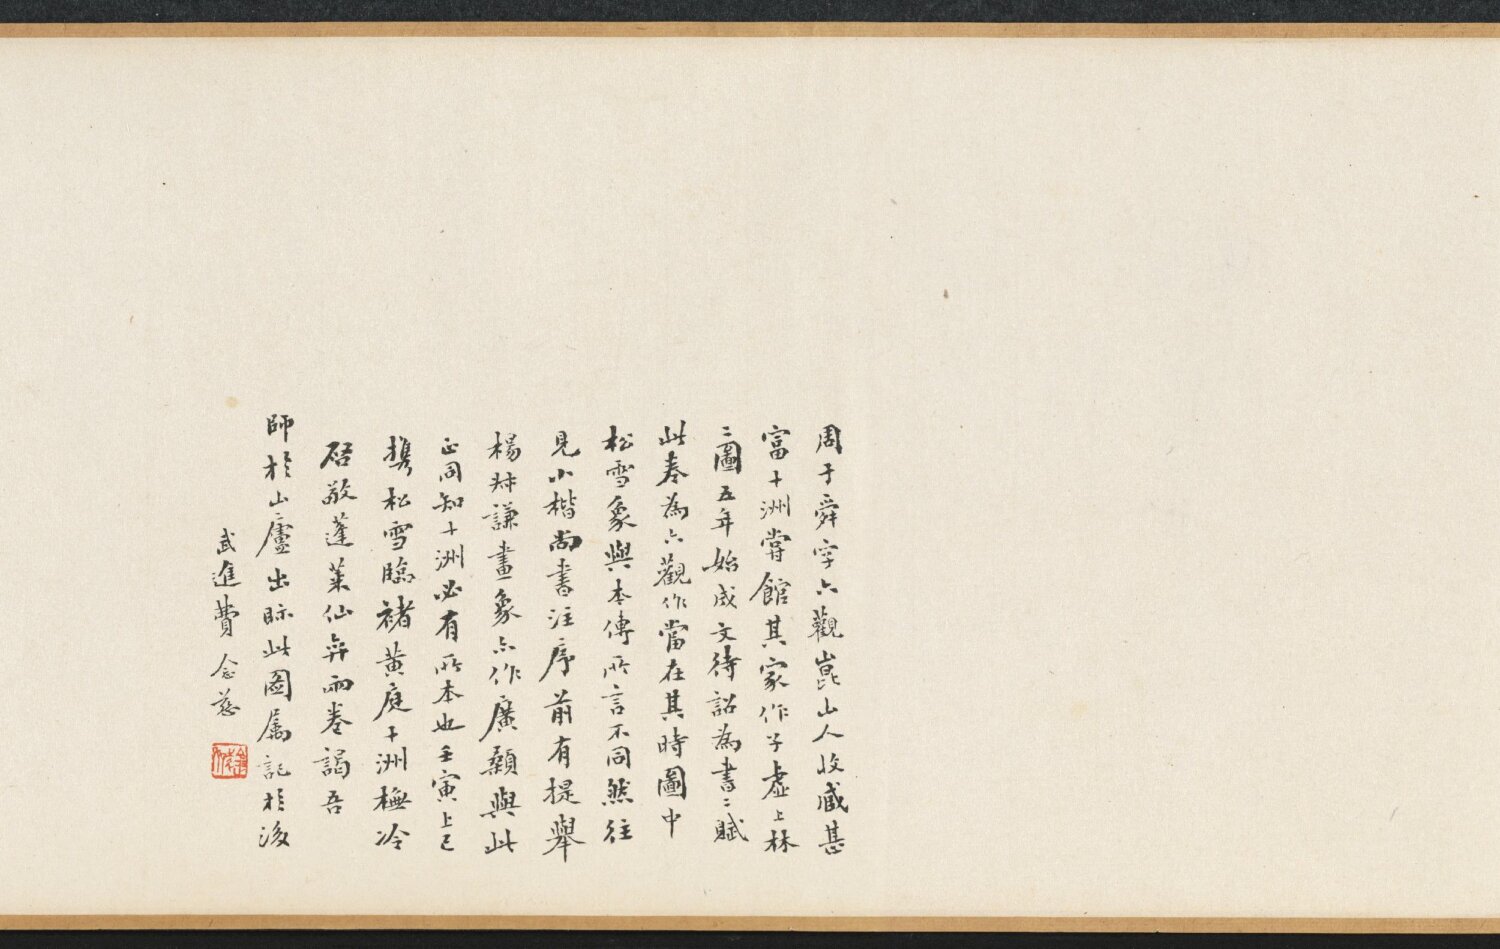 周于舜字六觀崑山人收藏甚
富十洲嘗館其家作子虛上林
二圖五年始成文待詔為書二賦
此卷為六觀作當在其時圖中
松雪象與本傳所言不同然往
見小楷尚書注序前有提舉
楊叔謙畫象亦作廣顙與此
正同知十洲必有所本也壬寅上巳
攜松雪臨褚黃庭十洲橅冷
启敬蓬萊仙弈兩卷謁吾
師於山廬出眎此圖屬記於後
武進費念慈